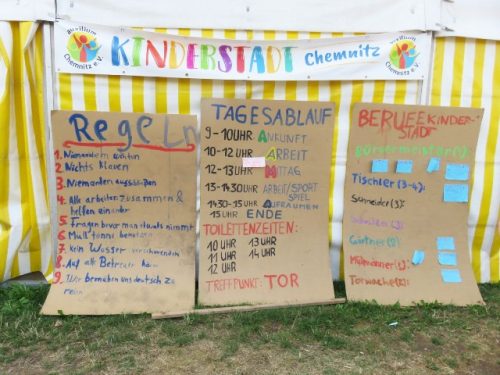 Auxilium Chemnitz e.V.
KINDERSTADT Chemnitz
Auxilium Chemnitz e.V.
Regeln
1. Niemandem
2. Nichts klauen
3. Niemanden ausschließen
4. Alle arbeiten zusammen &
helfen einander
5. Fragen bevor man etwas nimmt
6. Mülltonnen benutzen
7. Kein Wasser verschwenden
8. Auf alle Betreuer
9. Wir bemühen uns deutsch zu
reden
TAGESABLAUF
9-10 UHR ANKUNFT
10-12 UHR ARBEIT
12-13 UHR MITTAG
13-14:30 UHR ARBEIT/SPORT
SPIEL
14:30-15 UHR AUFRÄUMEN
15 UHR ENDE
TOILETTENZEITEN:
10 UHR 13 UHR
11 UHR 14 UHR
12 UHR
TREFFPUNKT: TOR
BERUFE KINDER-
STADT
Bürgermeister(1):
Tischler (3-4):
Schneider(3)
Gärtner(2):
Müllmänner(2):
Torwache(2):